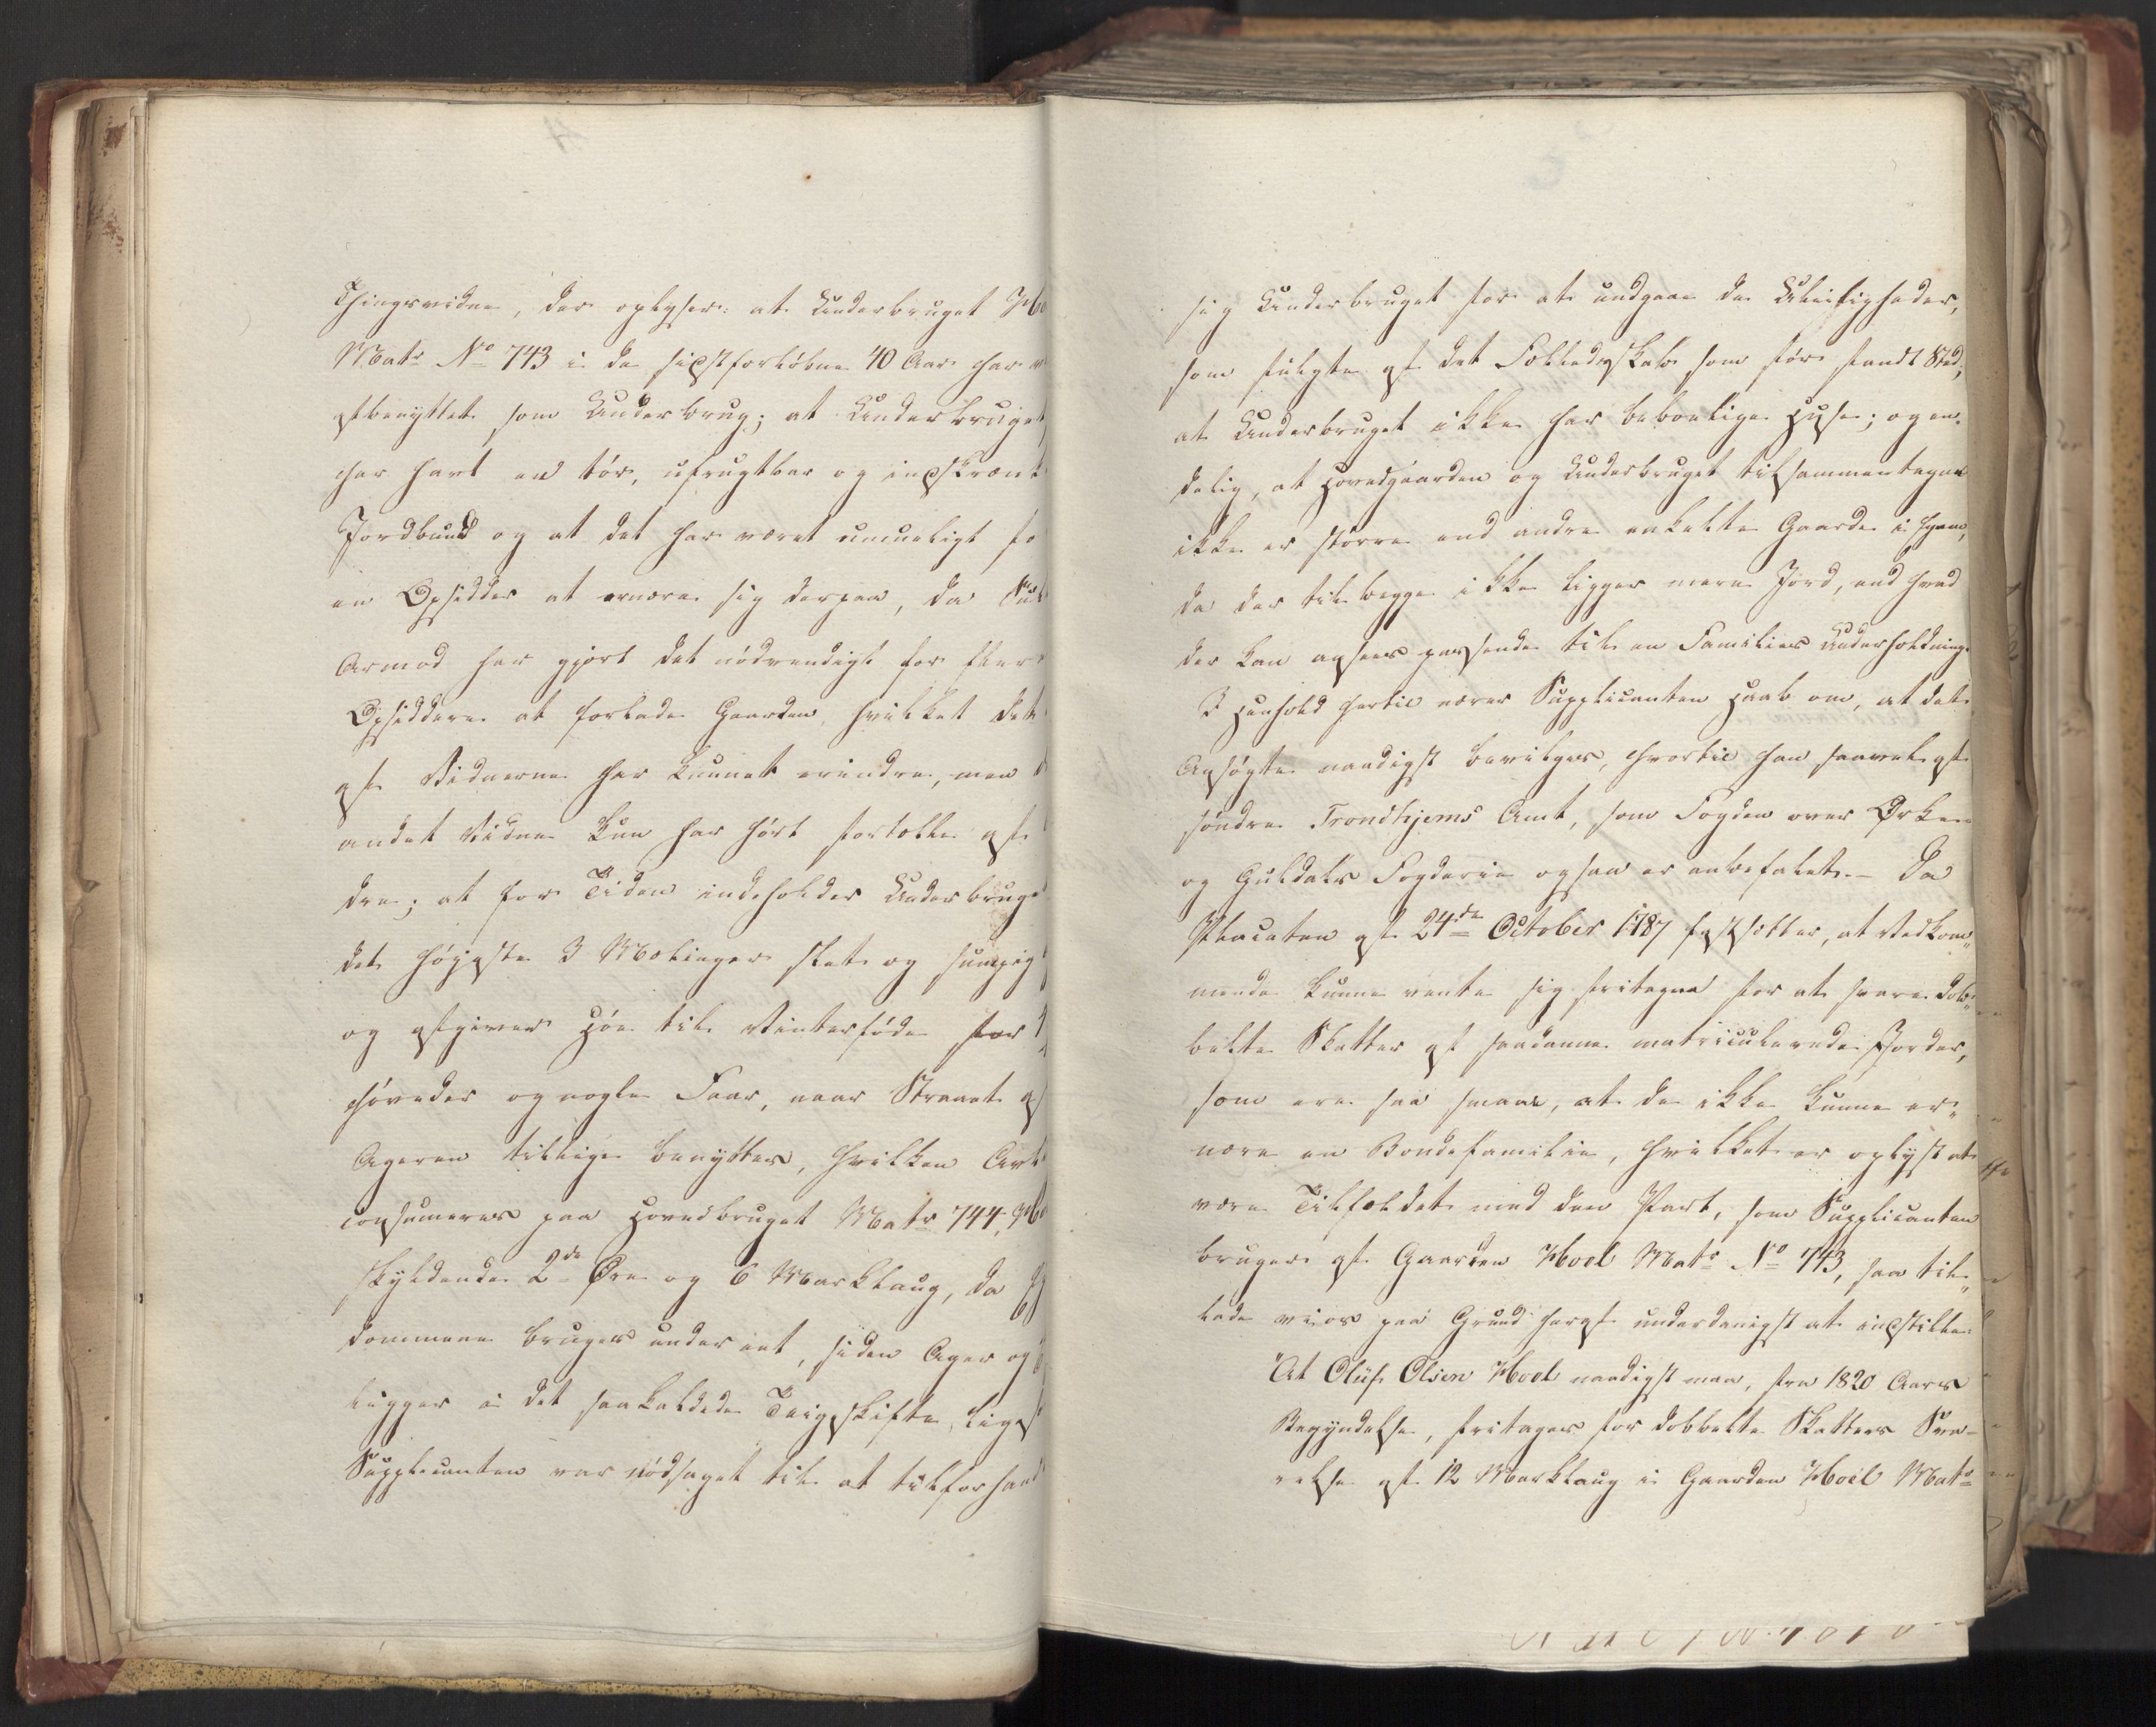 Thingsvidne, der oplyser: at Underbruget Ho
Matr No 743 i de sidstforløbne 40 Aar har
afbenyttet som Underbrug; at Underbruget
har havt en tør, ufrugtbar og indskrænt
Jordbund og at det har været umueligt fo
en Opsidder at ernære sig derpaa, da
Armod har gjort det nødvendigt for fler
Opsiddere at forlade Gaarden, hvilket det
af Vidnerne har kunnet erindre, men
andet Vidne kun har hørt fortælle af
dre; at for Tiden indeholder Underbruge
det høyeste 3 Mælinger slet og sumpig
og afgiver Høe til Vinterføde for 4
Høveder og nogle Faar, naar Straaet af
Ageren tillige benyttes, hvilken Avl
consumeres paa Hovedbruget Matr 744, Ho
skyldende 2de Øre og 6 Marklaug, da
dommene bruges under eet, siden Ager og
ligger i det saakaldede Teigeskifte, lige
Supplicanten var nødsaget til at tilforhand
sig Underbruget for at undgaae de Uleiligheder,
som fulgte af det Fælledsskab som før fandt Sted;
at Underbruget ikke har beboelige Huse; og en-
delig, at Hovedgaarden og Underbruget tilsammentagne
ikke er større end andre enkelte Gaarde i
da der til begge ikke ligger mere Jord, end hvad
der kan ansees passende til en Families Underholdning.
I Henhold hertil nærer Supplicanten Haab om, at det
Ansøgte naadigst bevilges, hvortil han saavel af
søndre Trondhjems Amt, som Fogden over Ørke-
og Guldals Fogderie ogsaa er anbefalet. - Da
Placaten af 24de October 1787 fastsætter, at Vedkom-
mende kunne vente sig fritagne for at svare dob-
belte Skatter af saadanne matriculerede Jorder,
som ere saa smaae, at de ikke kunne er-
nære en Bondefamilie, hvilket er oplyst at
være Tilfældet med den Part, som Supplicanten
bruger af Gaarden Hoel Matr No 743, saa til-
lade vi os paa Grund heraf underdanigst at indstille:
"At Oluf Olsen Hoel naadigst maa, fra 1820 Aars
Begyndelse, fritages for dobbelte Skatters Sva-
relse af 12 Marklaug i Gaarden Hoel Matr